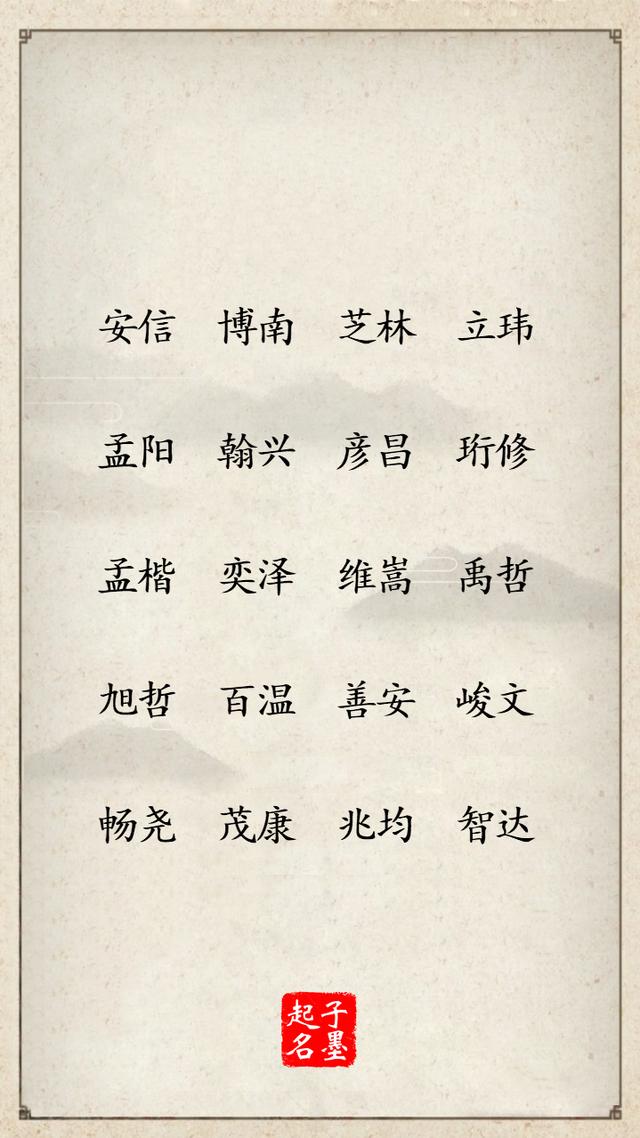 安信 博南 芝林 立玮
孟阳 翰兴 彦昌 珩修
孟楷 奕泽 维嵩 禹哲
旭哲 百温 善安 峻文
畅尧 茂康 兆均 智达
子墨
起名